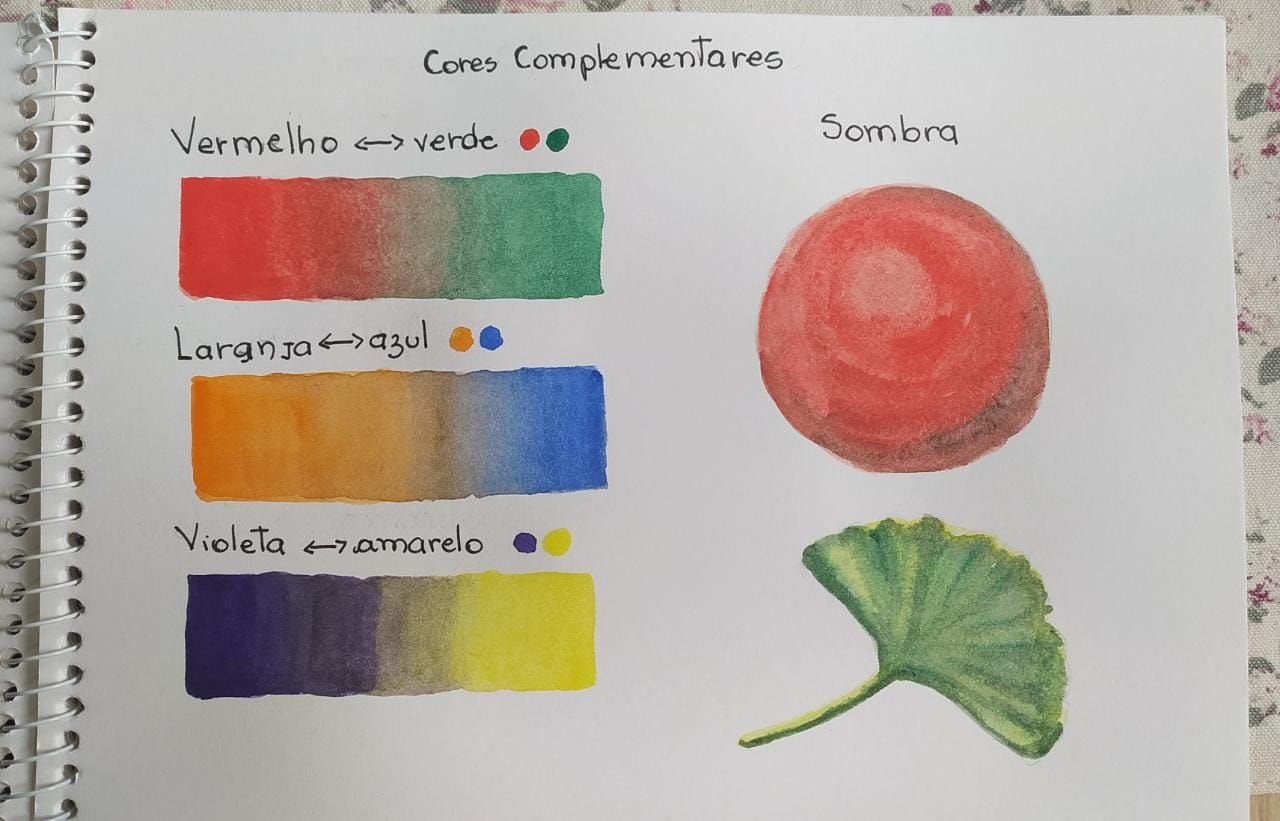 Cores Complementares
Vermelho <-> verde
Sombra
Laranja <-> azul
Violeta <-> amarelo